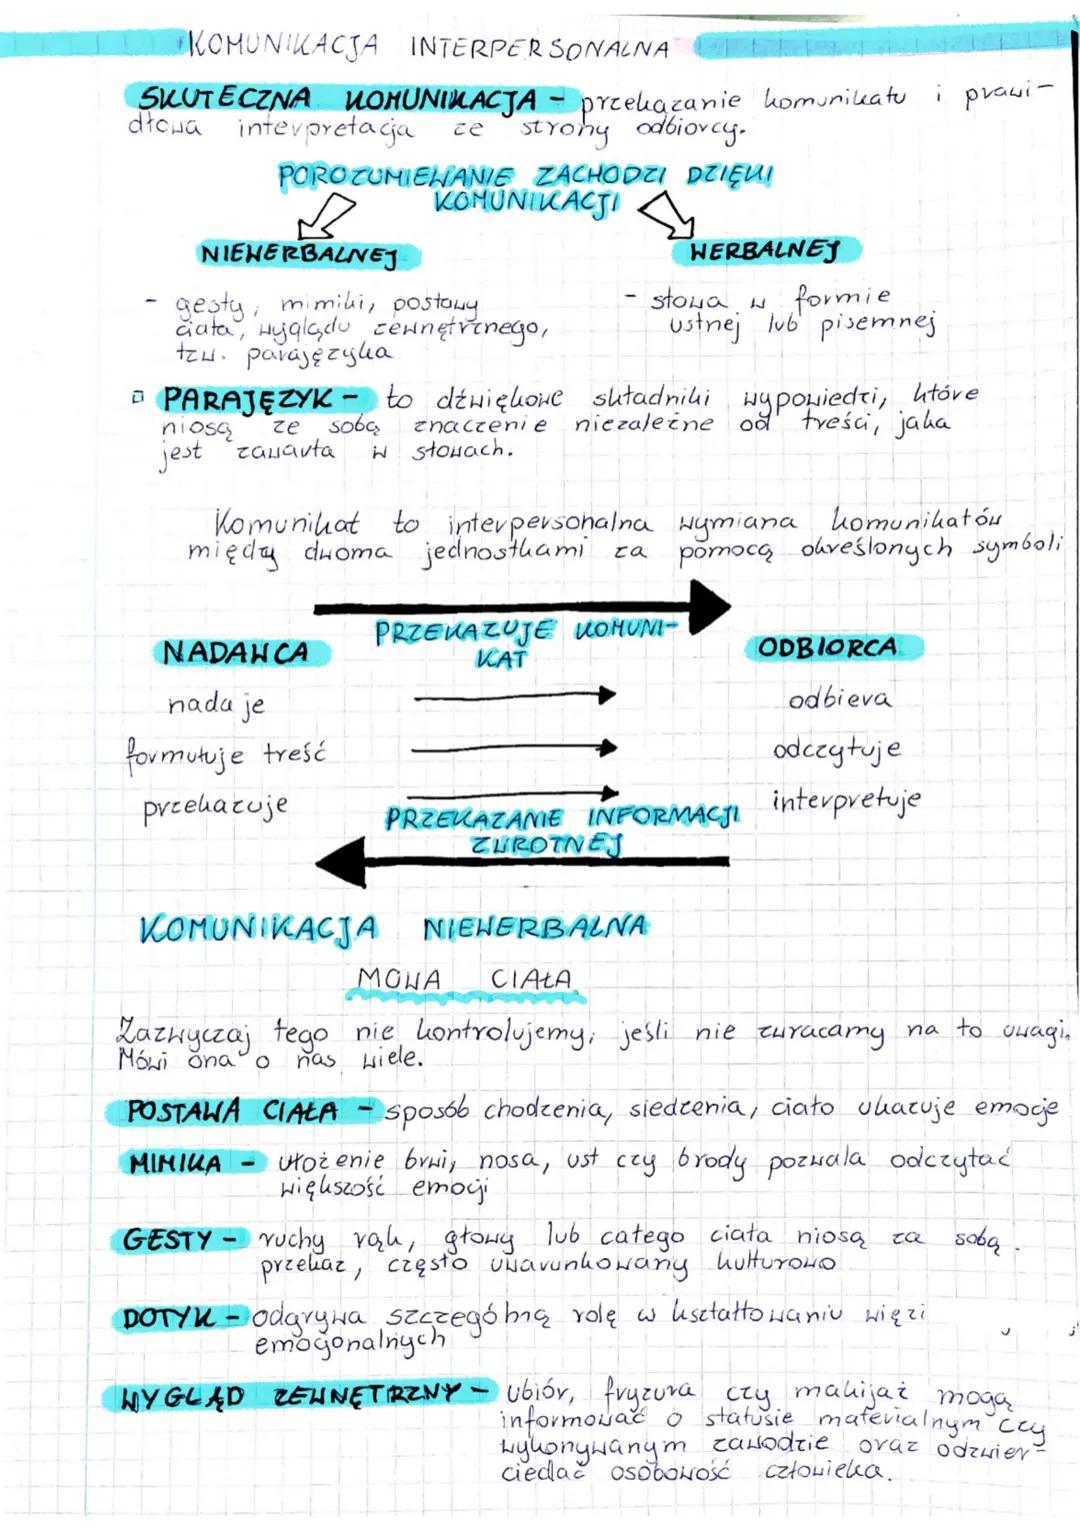 KOMUNIKACJA INTERPERSONALNA
SKUTECZNA KOMUNIKACJA - przekazanie komunikatu i prawi-
dłowa interpretacja ze strony odbiorcy.
POROZUMIEWANIE ZACHODZI DZIĘKI
KOMUNIKACJI
NIEWERBALNEJ
WERBALNEJ
- gesty, mimiki, postawy
ciała, wyglądu zewnętrznego,
tzw. parajęzyka
- słowa w formie
ustnej lub pisemnej
▫ PARAJĘZYK - to dźwiękowe składniki wypowiedzi, które
niosą ze sobą znaczenie niezależne od treści, jaka
jest zawarta w słowach.
Komunikat to interpersonalna wymiana komunikatów
między dwoma jednostkami za pomocą określonych symboli
PRZEKAZUJE KOMUNI-
KAT
NADAWCA
ODBIORCA
nadaje
odbiera
formułuje treść
odczytuje
przekazuje
interpretuje
PRZEKAZANIE INFORMACJI
ZWROTNEJ
KOMUNIKACJA NIEWERBALNA
MOWA CIAŁA
Zazwyczaj tego nie kontrolujemy, jeśli nie zwracamy na to uwagi.
Mówi ona o nas wiele.
POSTAWA CIAŁA - sposób chodzenia, siedzenia, ciało ukazuje emocje
MIMIKA - ułożenie brwi, nosa, ust czy brody pozwala odczytać
większość emocji
GESTY - ruchy rąk, głowy lub całego ciała niosą za sobą
przekaz, często uwarunkowany kulturowo
DOTYK - odgrywa szczególną rolę w kształtowaniu więzi
emocjonalnych
WYGLĄD ZEWNĘTRZNY - ubiór, fryzura czy makijaż mogą
informować o statusie materialnym czy
wykonywanym zawodzie oraz odzwier-
ciedlać osobowość człowieka.